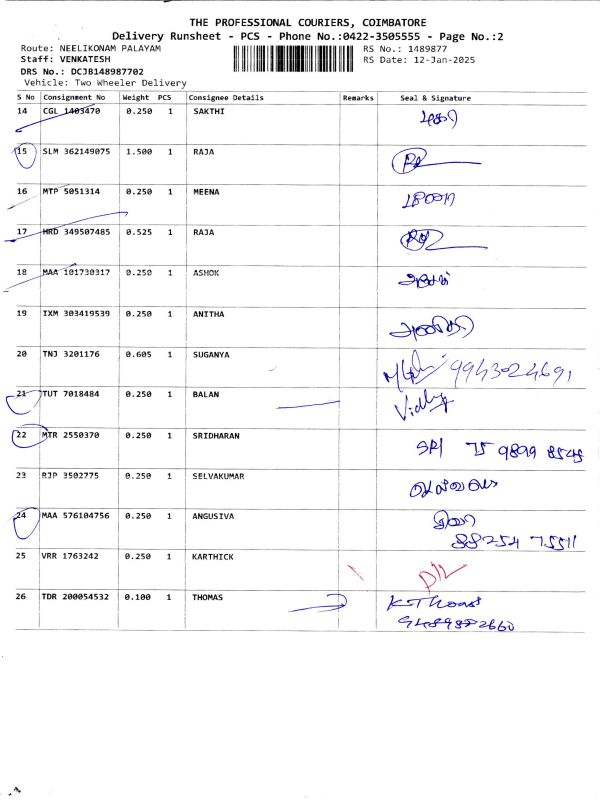 THE PROFESSIONAL COURIERS, COIMBATORE
Delivery Runsheet - PCS - Phone No.:0422-3505555 - Page No.:2
Route: NEELIKONAM PALAYAM RS No.: 1489877
Staff: VENKATESH RS Date: 12-Jan-2025
DRS No.: DCJB148987702
Vehicle: Two Wheeler Delivery
S No Consignment No Weight PCS Consignee Details Remarks Seal & Signature
14 CGL 1403470 0.250 1 SAKTHI
15 SLM 362149075 1.500 1 RAJA
16 MTP 5051314 0.250 1 MEENA
17 HRD 349507485 0.525 1 RAJA
18 MAA 101730317 0.250 1 ASHOK
19 IXM 303419539 0.250 1 ANITHA
20 TNJ 3201176 0.605 1 SUGANYA 9943024691
21 TUT 7018484 0.250 1 BALAN
22 MTR 2550370 0.250 1 SRIDHARAN SRI 75 9899 8545
23 RJP 3502775 0.250 1 SELVAKUMAR
24 MAA 576104756 0.250 1 ANGUSIVA
88254 75511
25 VRR 1763242 0.250 1 KARTHICK D/L
26 TDR 200054532 0.100 1 THOMAS
9489882660